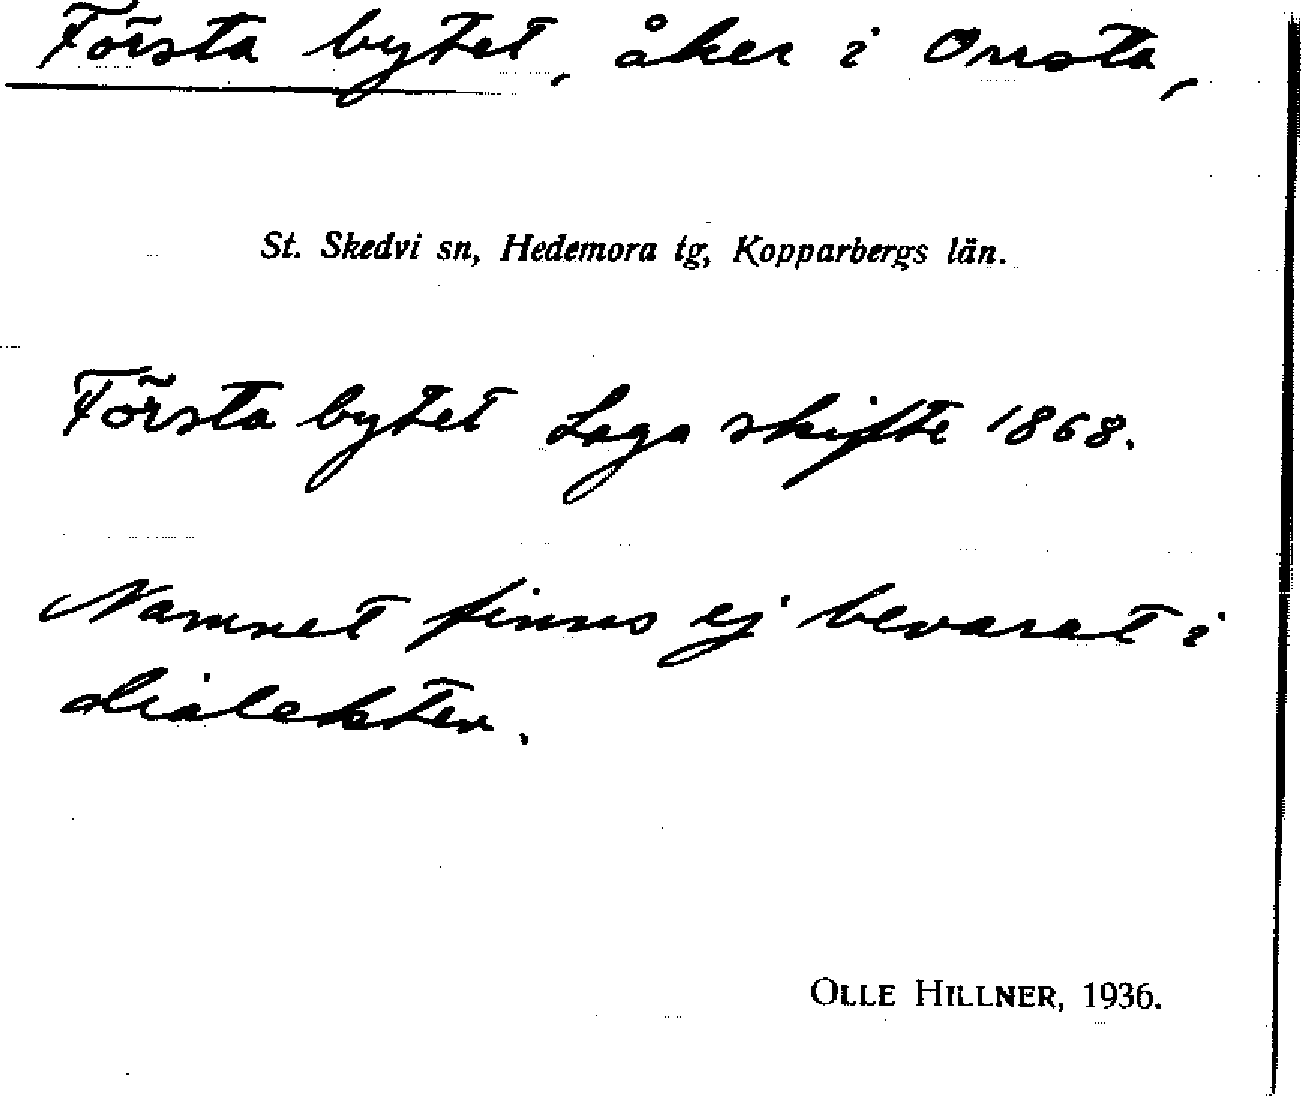 Första bytet, åker i Onsta,
St. Skedvi sn, Hedemora tg, Kopparbergs län.
Första bytet Laga skifte 1868.
Namnet finns ej bevarat i
dialekten.
OLLE HILLNER, 1936.